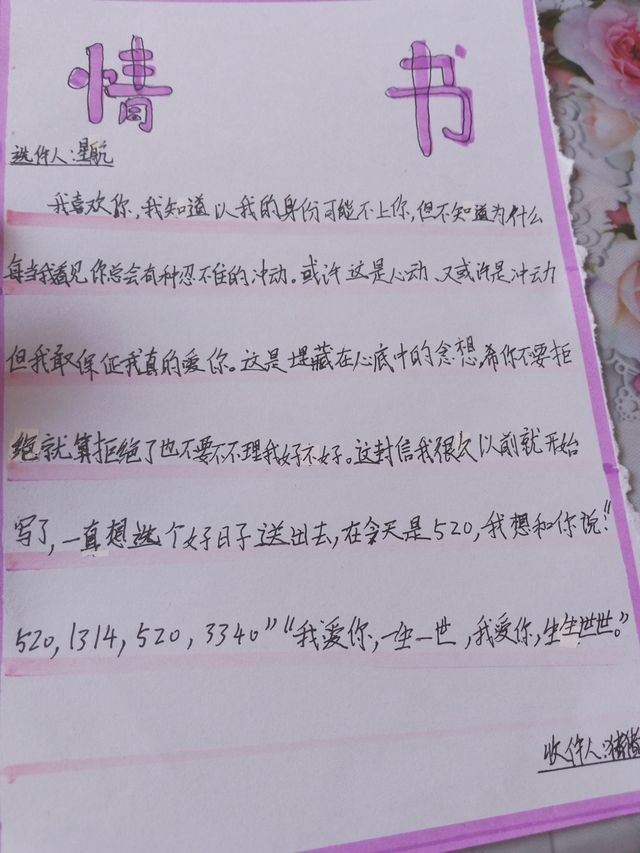 情 书
送件人:星航
我喜欢你,我知道以我的身份可能不上你,但不知道为什么
每当我看见你总会有种忍不住的冲动。或许这是心动、又或许是冲动
但我敢保证我真的爱你。这是埋藏在心底中的念想,希你不要拒
绝就算拒绝了也不要不不理我好不好。这封信我很久以前就开始
写了,一直想选个好日子送出去,在今天是520,我想和你说:“
520,1314,520,3340”“我爱你,一生一世,我爱你,生生世世。”
收件人:猪猪